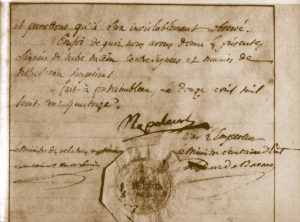 et promettons qu'il sera inviolablement observé.
Enfoi de quoi nous avons donné les présentes
signées de notre main contresignées et munies de
notre sceau impérial
fait à fontainebleau le douze avril mil
huit cent quatorze.
Napoleon
par l'Empereur
le ministre des relations
le ministre Secrétaire d'Etat